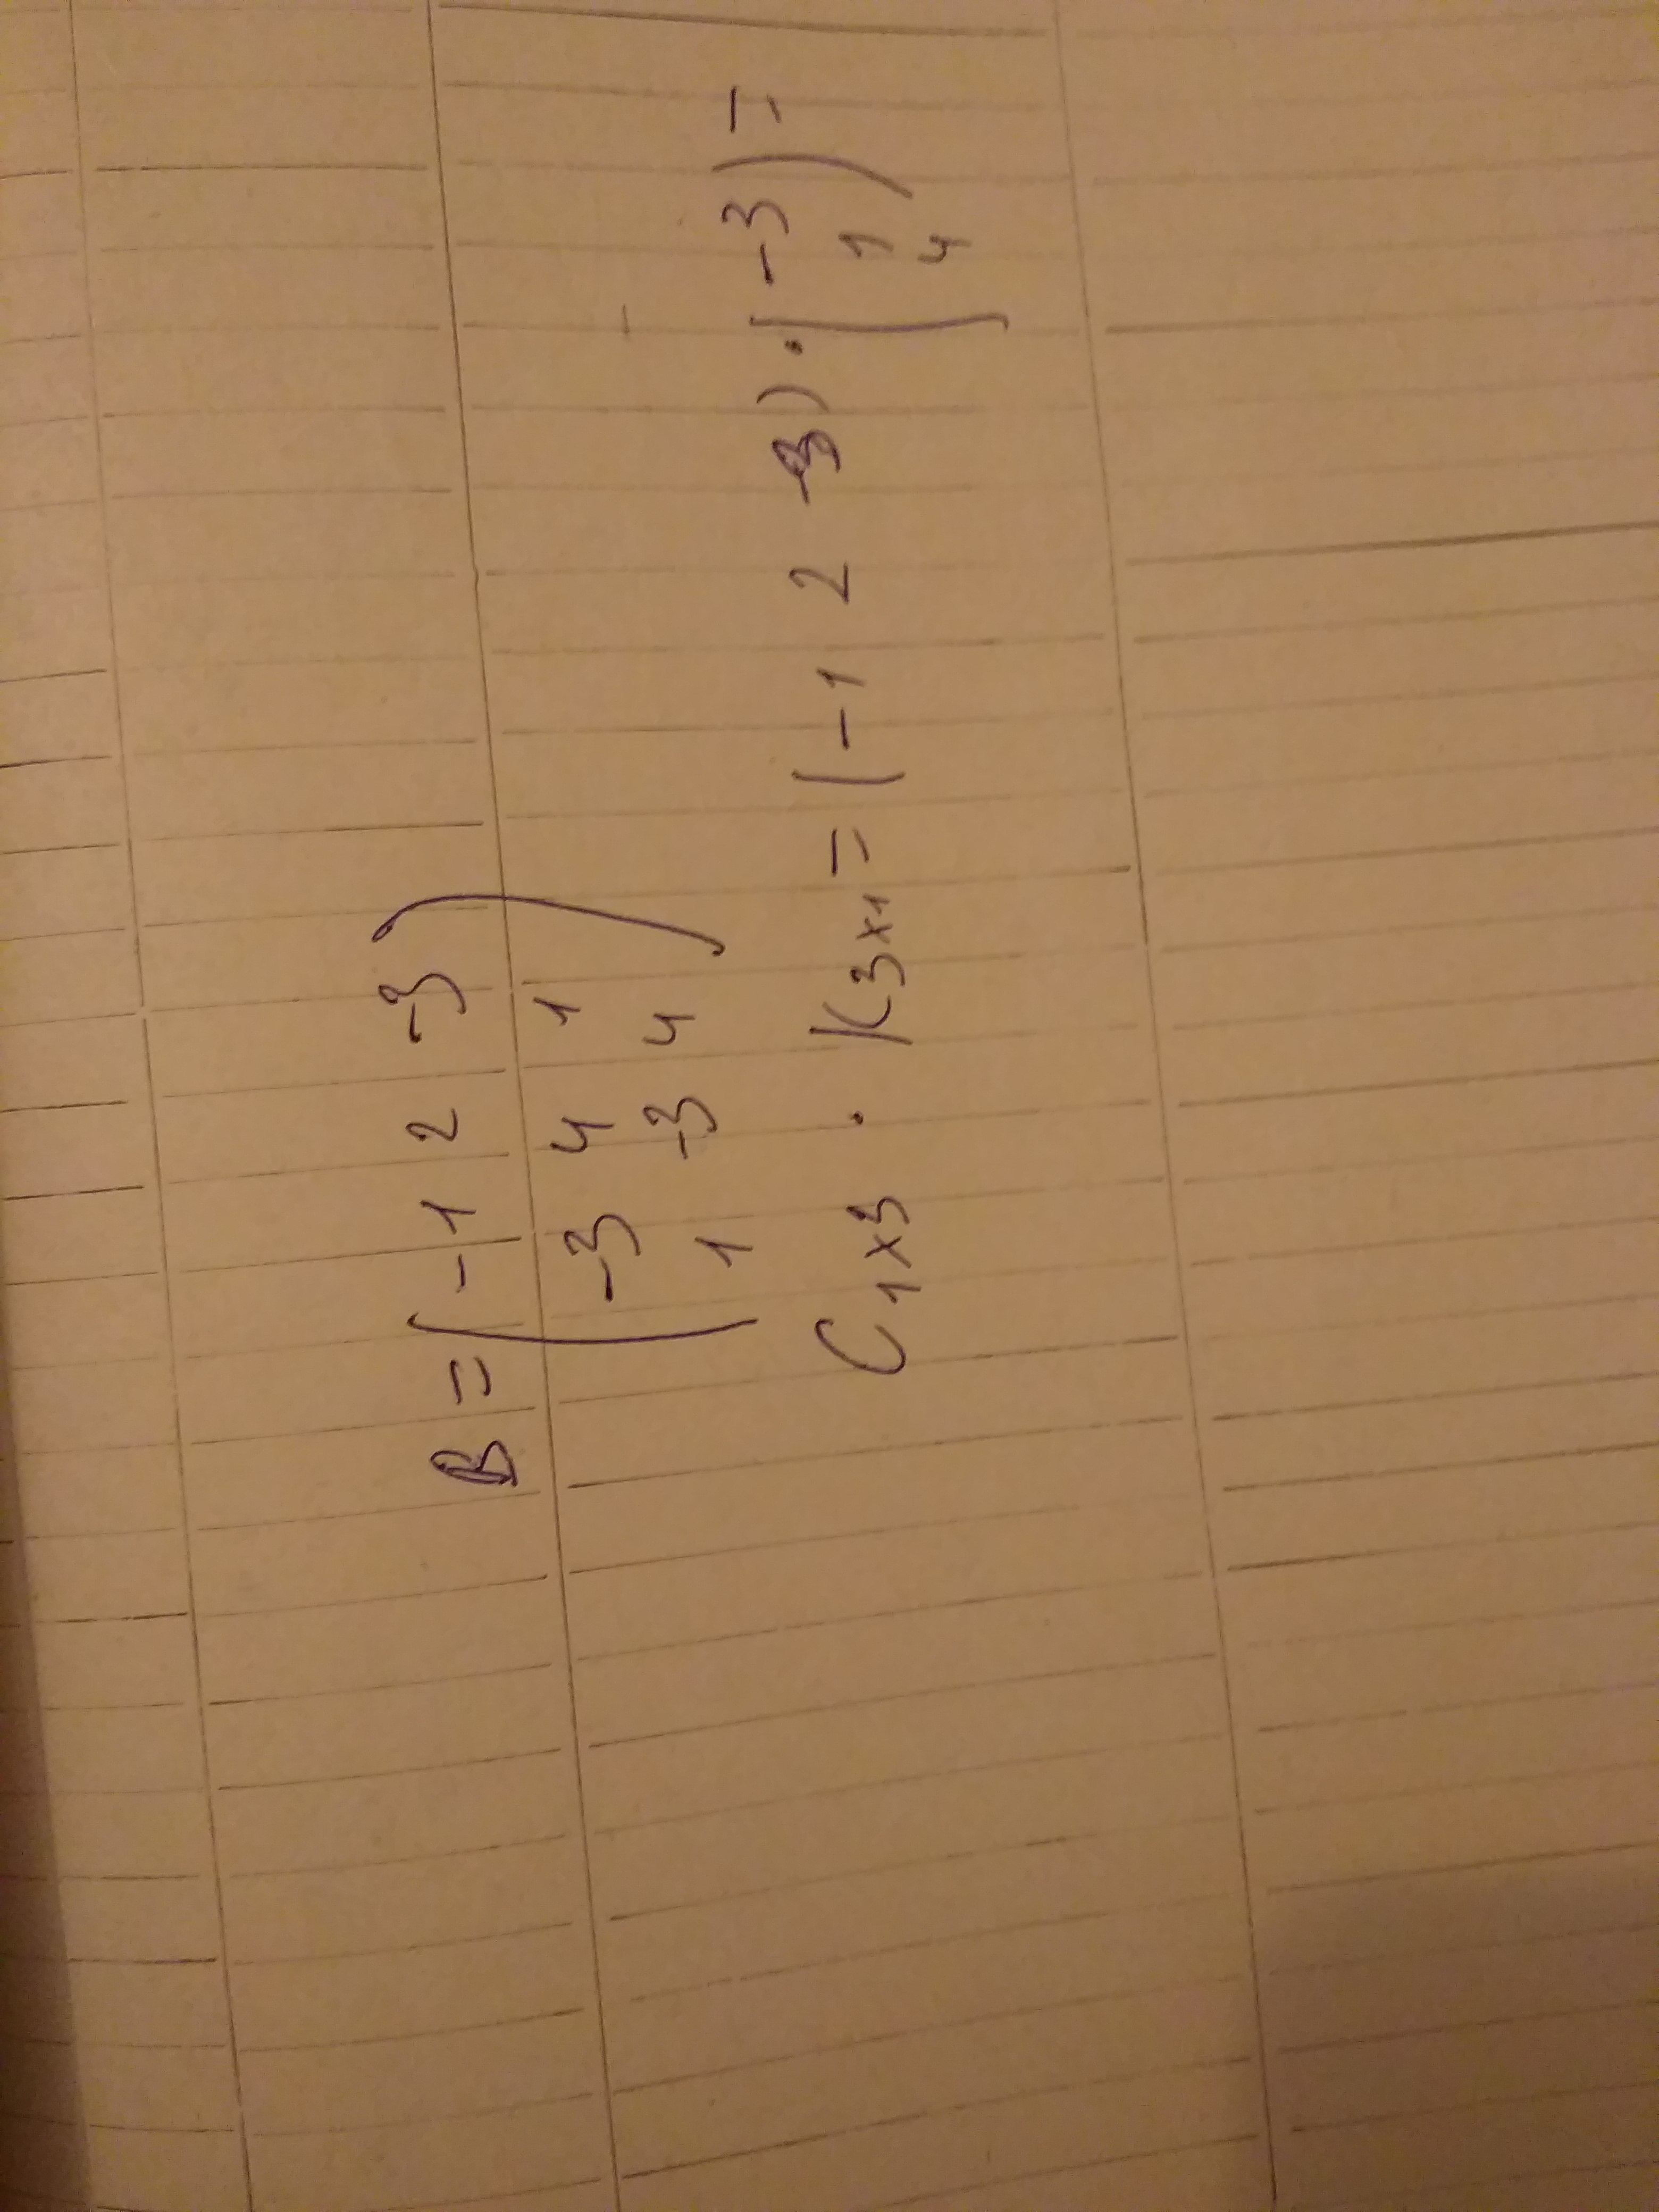 B = ( -1 2 -3 )
-3 4 1
1 -3 4
C 1x3 · K 3x1 = ( -1 2 -3 ) · ( -3 ) =
1
4